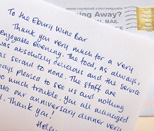 To the Ebury Wine Bar
Thank you very much for a very
enjoyable evening. The food, as always,
was absolutely delicious and the service
was second to none. The staff are
always pleased to see us and nothing
is too much trouble. You all managed
our anniversary dinner very
well. Thank you!
Helen